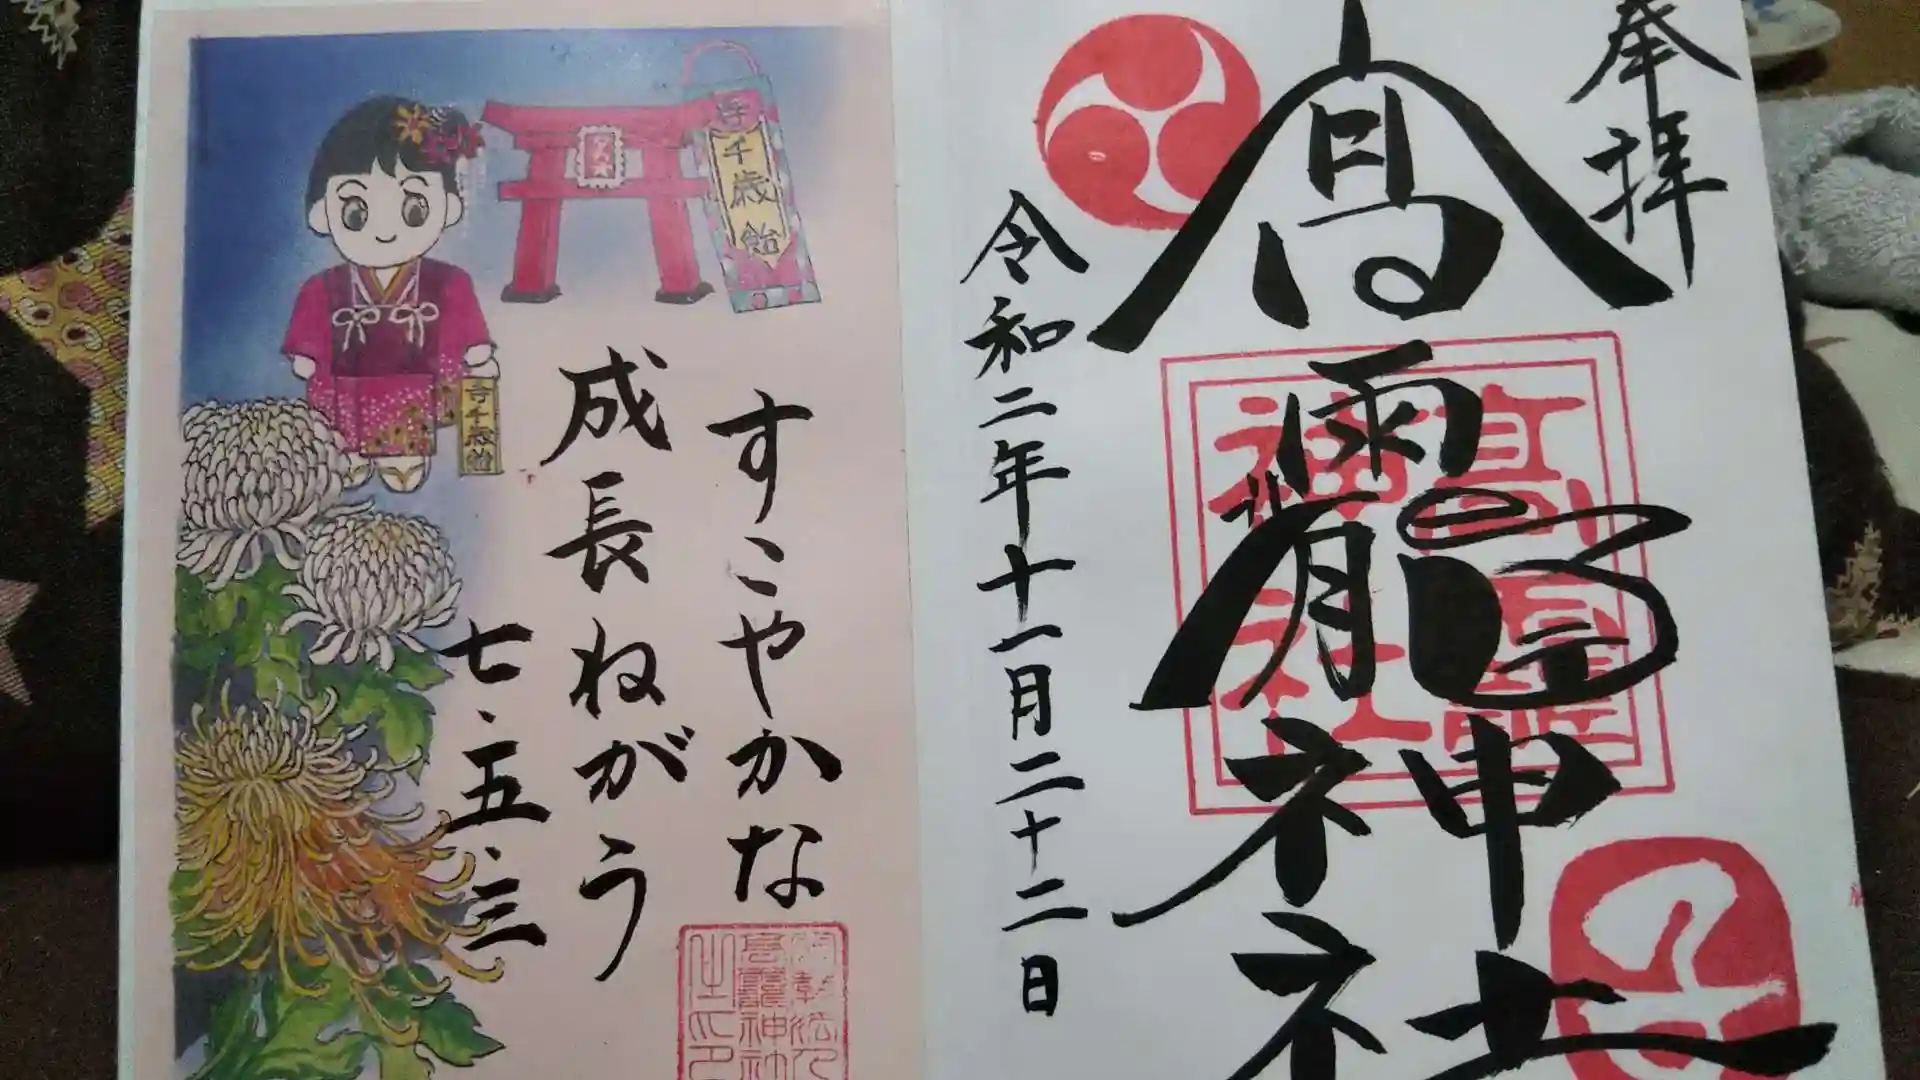 奉拝
高龗神社
令和二年十一月二十二日
高龗神社
すこやかな
成長ねがう
七・五・三
千歳飴
寿千歳飴